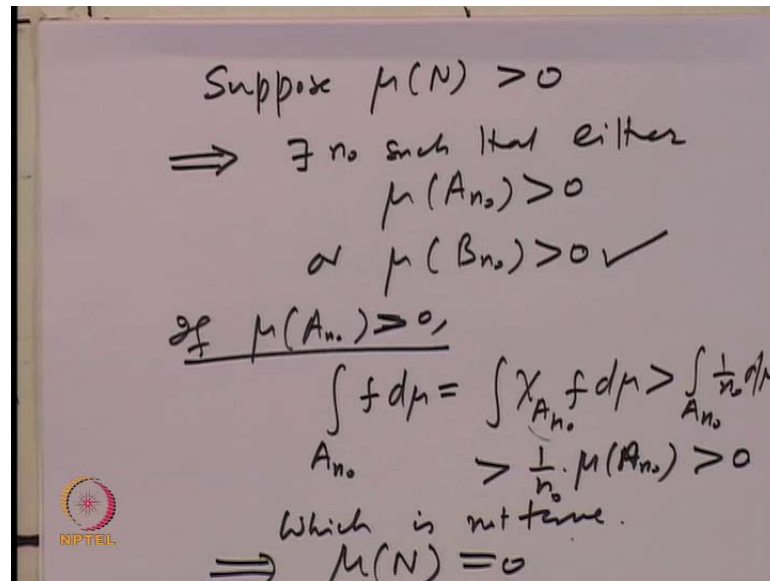 Suppose μ(N) > 0
⟹ ∃ n₀ such that either
μ(Aₙ₀) > 0
or μ(Bₙ₀) > 0 ✓
If μ(Aₙ₀) > 0,
∫_{Aₙ₀} f dμ = ∫ χ_{Aₙ₀} f dμ > ∫_{Aₙ₀} 1/n₀ dμ
> 1/n₀ · μ(Aₙ₀) > 0
which is not true.
⟹ μ(N) = 0
NPTEL